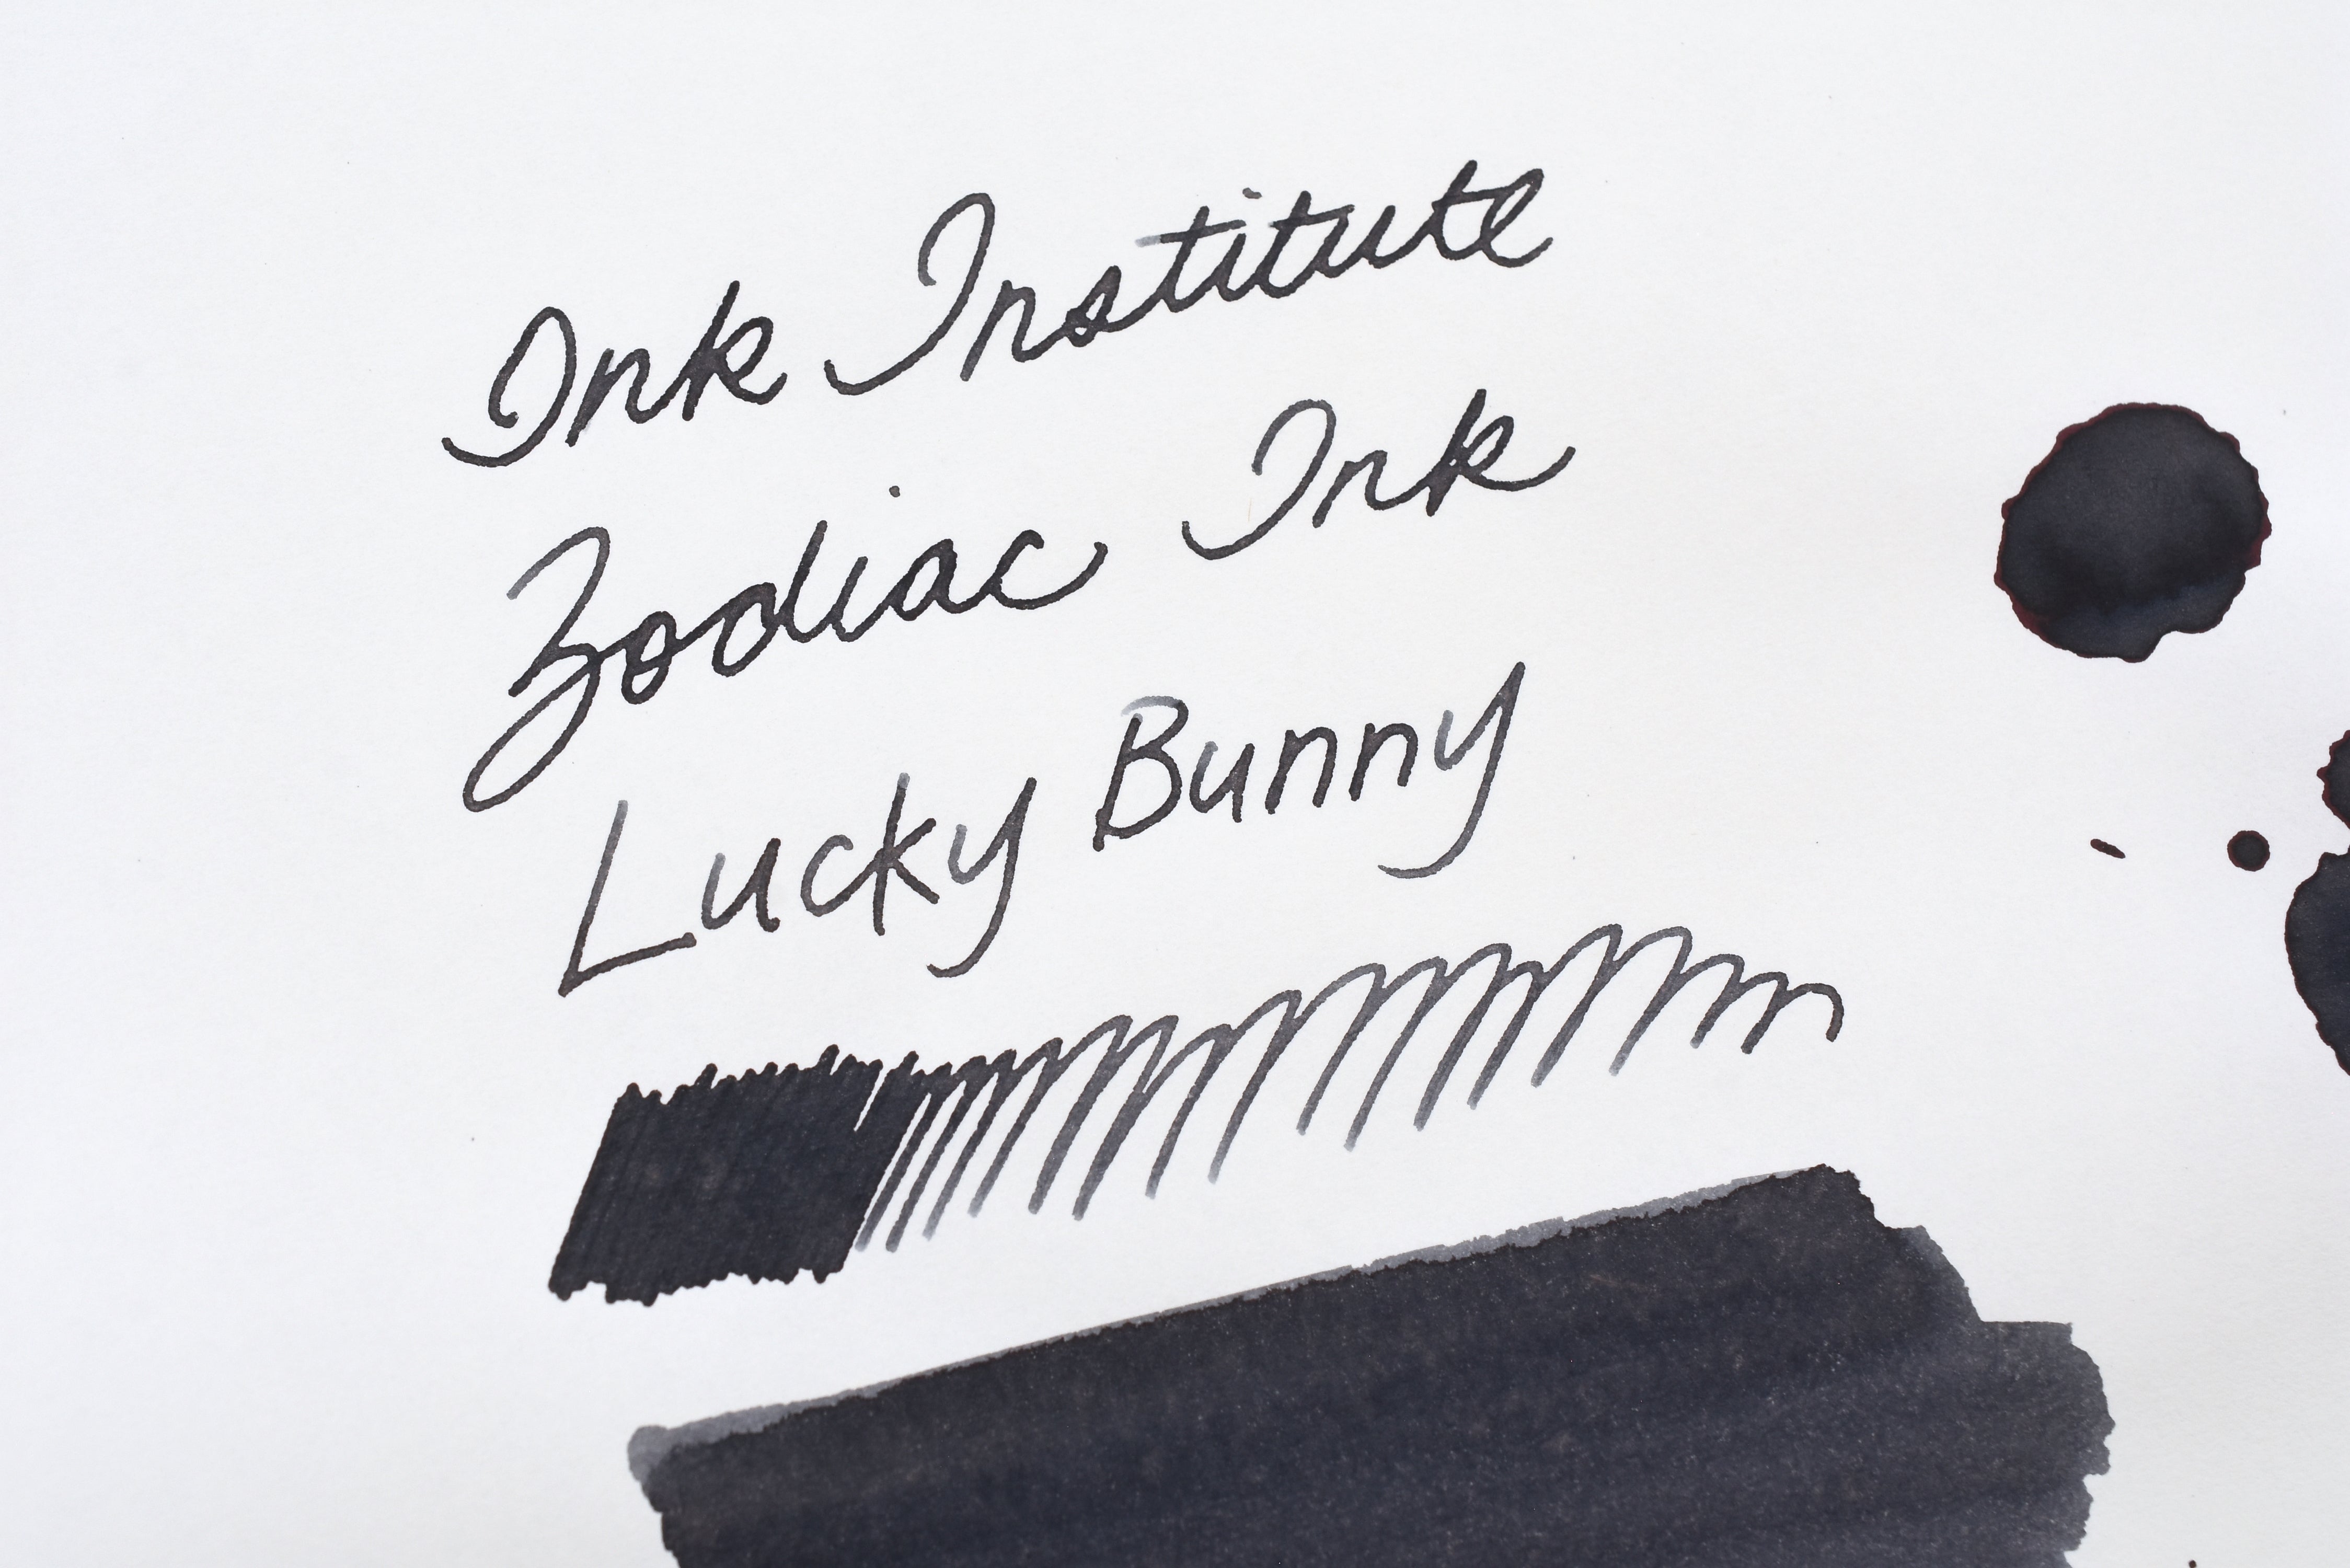 Ink Institute
Zodiac Ink
Lucky Bunny